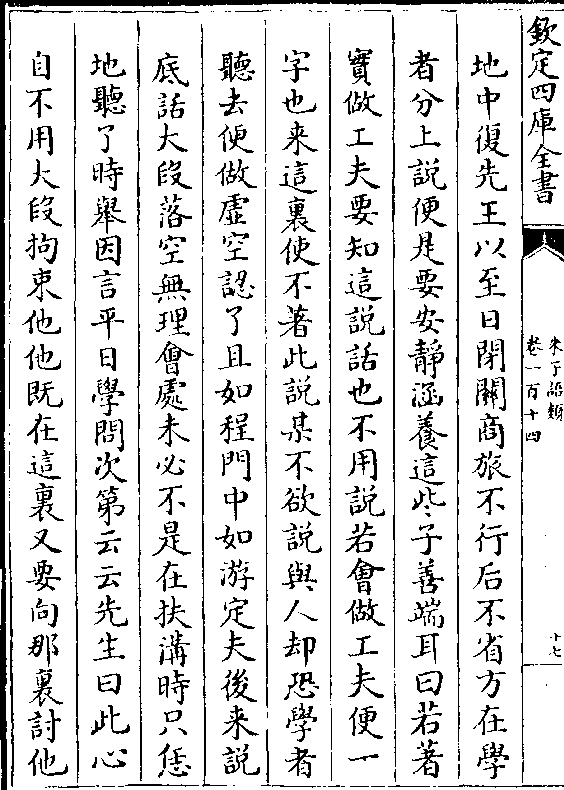 欽定四庫全書
朱子語類
卷一百十四
十七
地中復先王以至日閉關商旅不行后不省方在學
者分上說便是要安靜涵養這些子善端耳曰若著
實做工夫要知這說話也不用說若會做工夫便一
字也来這裏使不著此說某不欲說與人却恐學者
聽去便做虛空認了且如程門中如游定夫後来說
底話大段落空無理會處未必不是在扶溝時只恁
地聽了時舉因言平日學問次第云云先生曰此心
自不用大段拘束他他既在這裏又要向那裏討他